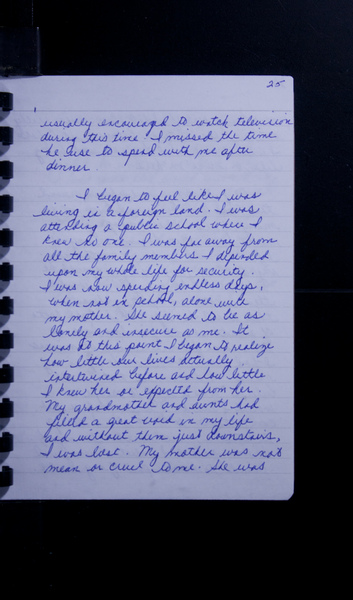 25
usually encouraged to watch television
during this time. I missed the time
he use to spend with me after
dinner.
I began to feel like I was
living in a foreign land. I was
attending a public school where I
knew no one. I was far away from
all the family members I depended
upon my whole life for security.
I was now spending endless days,
when not in school, alone with
my mother. She seemed to be as
lonely and insecure as me. It
was at this point I began to realize
how little our lives actually
intertwined before and how little
I knew her or expected from her.
My grandmother and aunts had
filled a great void in my life
and without them just downstairs,
I was lost. My mother was not
mean or cruel to me. She was